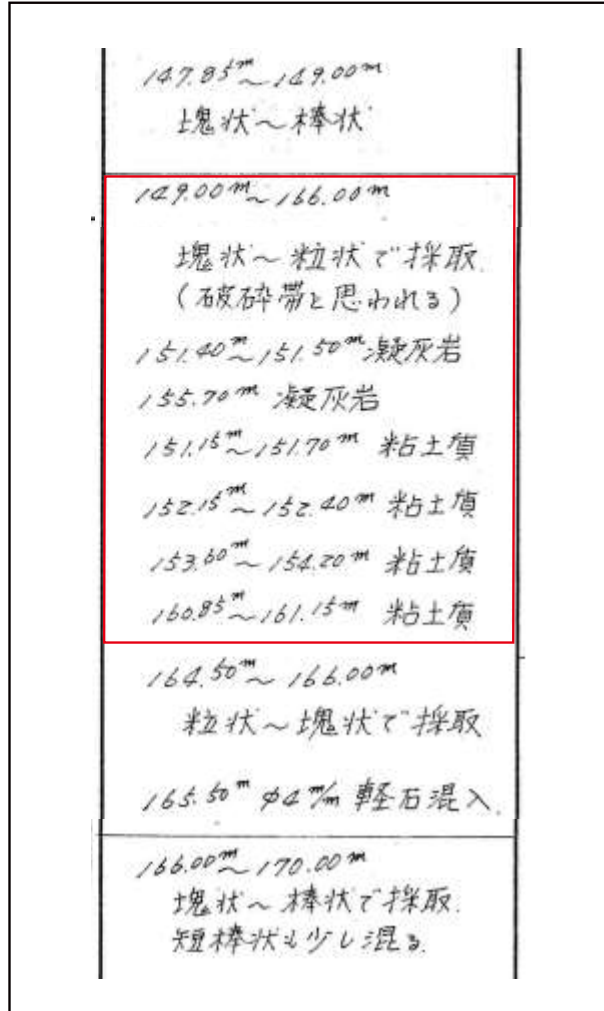 147.85m～149.00m
塊状～棒状
149.00m～166.00m
塊状～粒状で採取.
(破砕帯と思われる)
151.40m～151.50m 凝灰岩
155.70m 凝灰岩
151.15m～151.70m 粘土質
152.15m～152.40m 粘土質
153.60m～154.20m 粘土質
160.85m～161.15m 粘土質
164.50m～166.00m
粒状～塊状で採取
165.50m φ4m/m 軽石混入.
166.00m～170.00m
塊状～棒状で採取.
短棒状も少し混る.